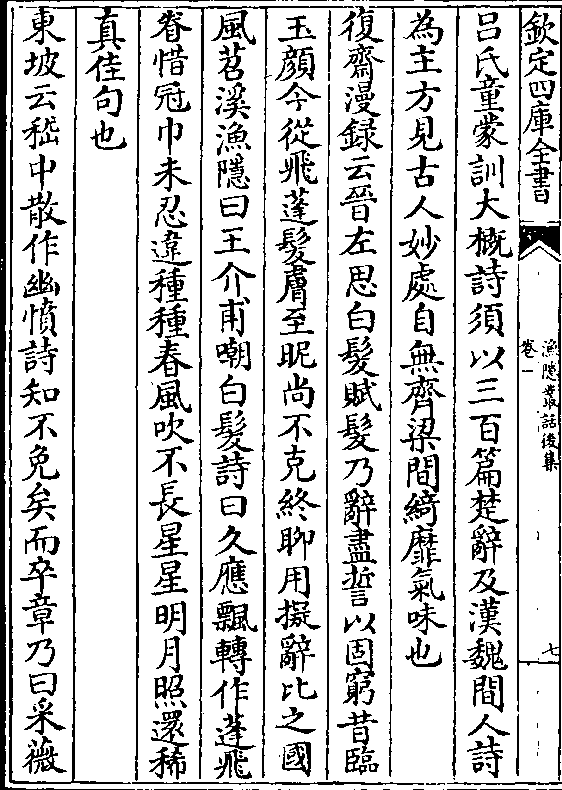 欽定四庫全書
漁隱叢話後集
卷一
七
呂氏童蒙訓大槪詩須以三百篇楚辭及漢魏間人詩
為主方見古人妙處自無齊梁間綺靡氣味也
復齋漫録云晉左思白髮賦髮乃辭盡誓以固窮昔臨
玉顔今從飛蓬髮膚至昵尚不克終聊用擬辭比之國
風苕溪漁隱曰王介甫嘲白髮詩曰久應飄轉作蓬飛
眷惜冠巾未忍違種種春風吹不長星星明月照還稀
真佳句也
東坡云嵇中散作幽憤詩知不免矣而卒章乃曰采薇